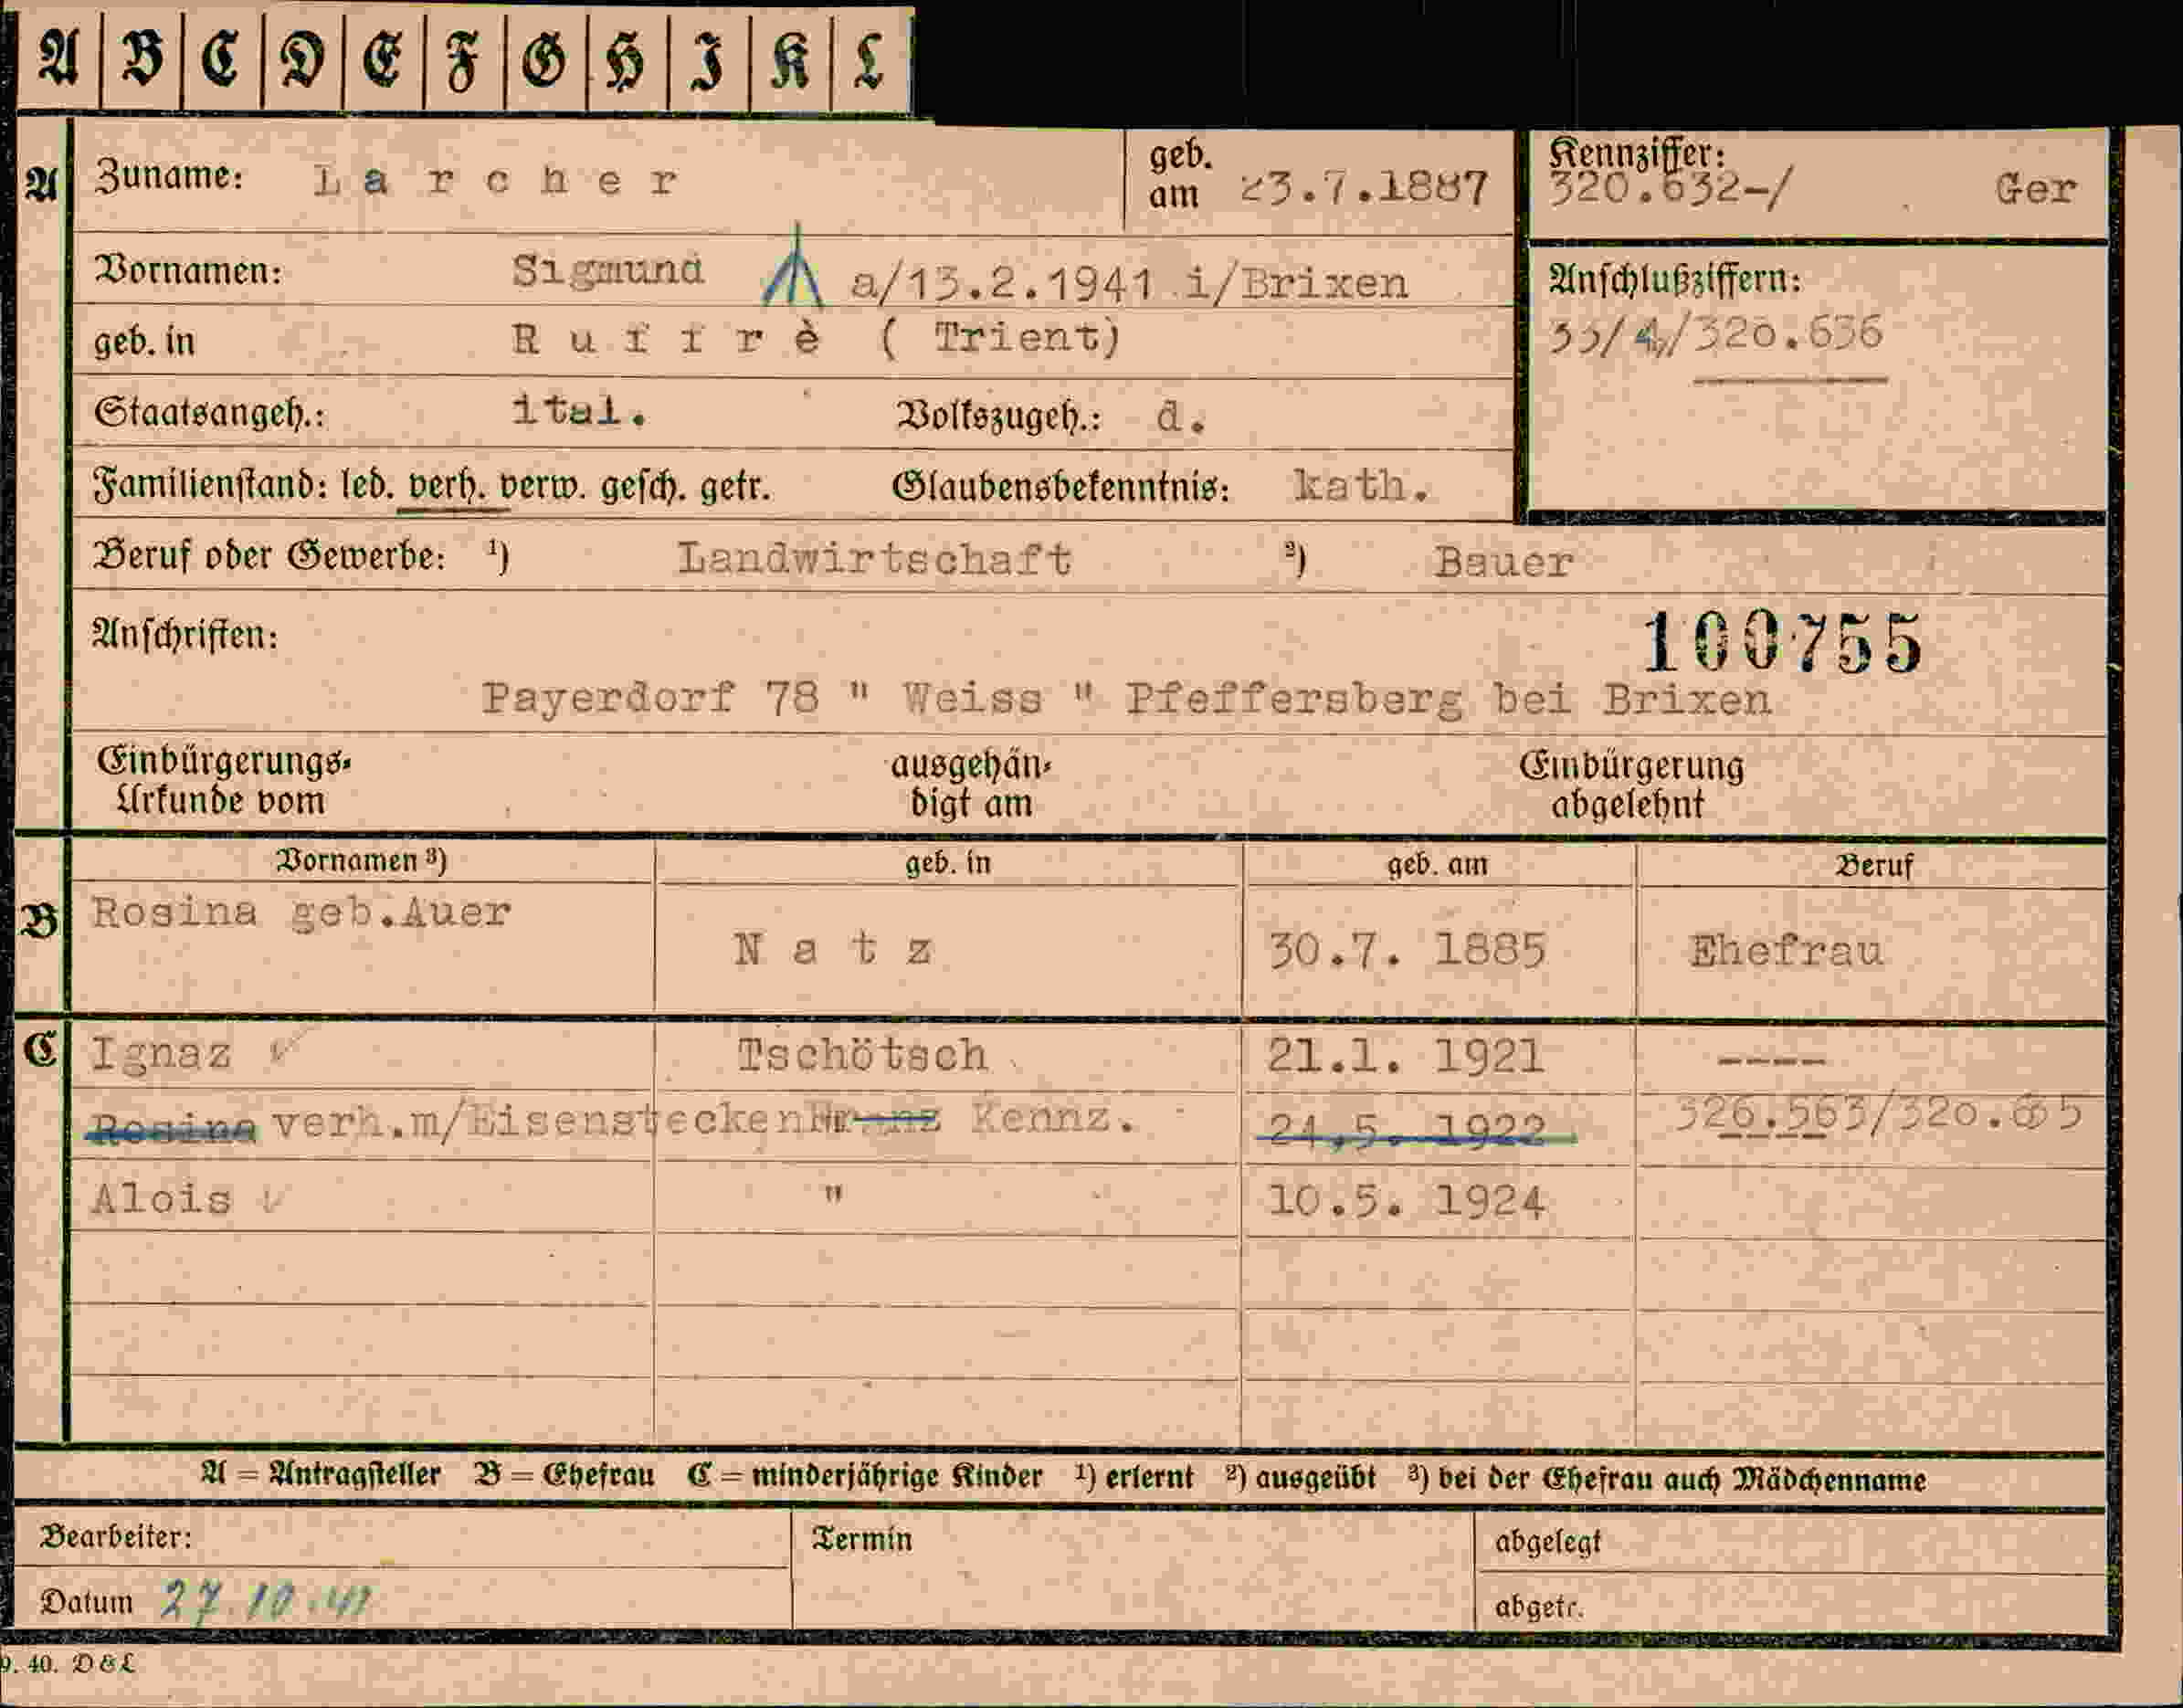 A B C D E F G H I K L
A Zuname: Larcher geb. am 23.7.1887 Kennziffer: 320.632-/ Ger
Vornamen: Sigmund a/13.2.1941 i/Brixen Anschlußziffern:
geb. in Ruffrè ( Trient) 33/4,/320.636
Staatsangeh.: ital. Volkszugeh.: d.
Familienstand: led. verh. verw. gesch. getr. Glaubensbekenntnis: kath.
Beruf oder Gewerbe: ¹) Landwirtschaft ²) Bauer
Anschriften: 100755
Payerdorf 78 " Weiss " Pfeffersberg bei Brixen
Einbürgerungs- ausgehän- Einbürgerung
Urkunde vom digt am abgelehnt
Vornamen ³) geb. in geb. am Beruf
B Rosina geb.Auer Natz 30.7. 1885 Ehefrau
C Ignaz Tschötsch 21.1. 1921 ----
Rosina verh.m/Eisenstecken Kennz. 24.5. 1922 326.563/320.635
Alois " 10.5. 1924
A = Antragsteller B = Ehefrau C = minderjährige Kinder ¹) erlernt ²) ausgeübt ³) bei der Ehefrau auch Mädchenname
Bearbeiter: Termin abgelegt
Datum 27.10.41 abgetr.
9. 40. D&L